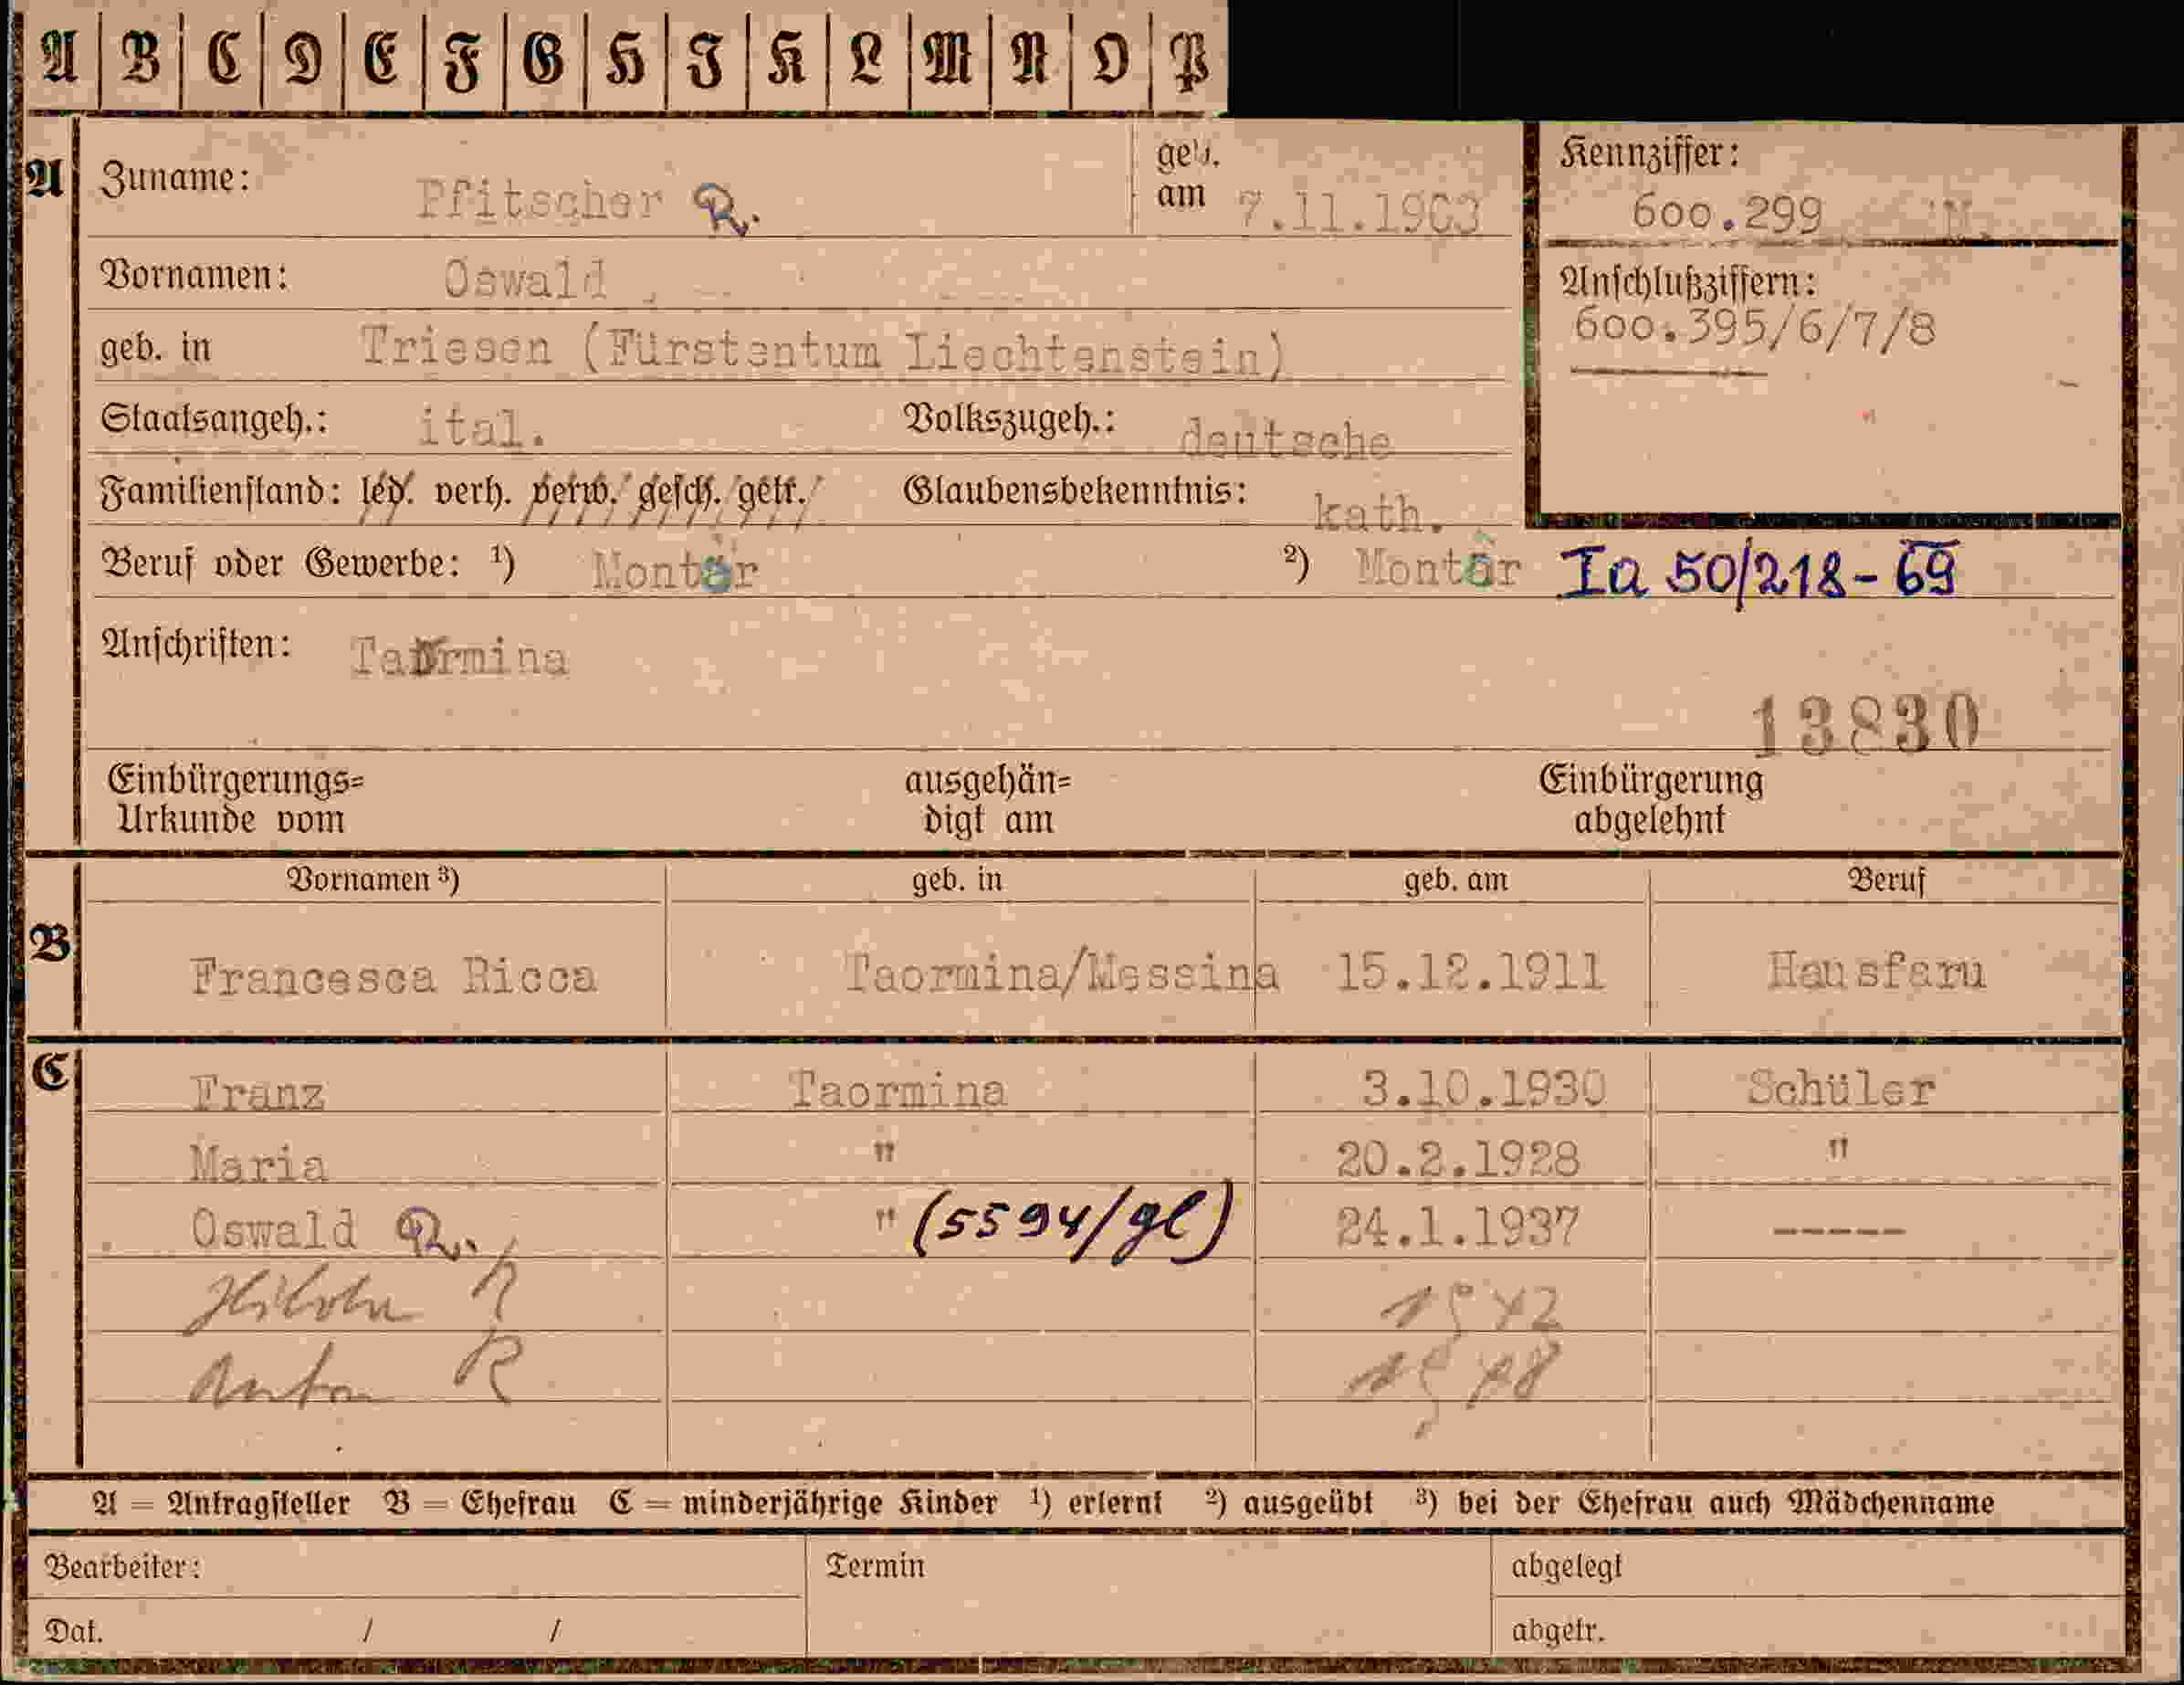 A B C D E F G H I K L M N O P
A Zuname: Pfitscher R. geb. am 7.11.1903
Kennziffer: 600.299
Vornamen: Oswald
Anschlußziffern: 600.395/6/7/8
geb. in Triesen (Fürstentum Liechtenstein)
Staatsangeh.: ital. Volkszugeh.: deutsche
Familienstand: led. verh. verw. gesch. getr. Glaubensbekenntnis: kath.
Beruf oder Gewerbe: ¹) Montör ²) Montör Ia 50/218-69
Anschriften: Taormina
13830
Einbürgerungs= Urkunde vom ausgehän= digt am Einbürgerung abgelehnt
Vornamen ³) geb. in geb. am Beruf
B Francesca Ricca Taormina/Messina 15.12.1911 Hausfaru
C Franz Taormina 3.10.1930 Schüler
Maria " 20.2.1928 "
Oswald R. " (5594/gl) 24.1.1937 -----
R 1942
Anton R
A = Antragsteller B = Ehefrau C = minderjährige Kinder ¹) erlernt ²) ausgeübt ³) bei der Ehefrau auch Mädchenname
Bearbeiter: Termin abgelegt
Dat. / / abgetr.